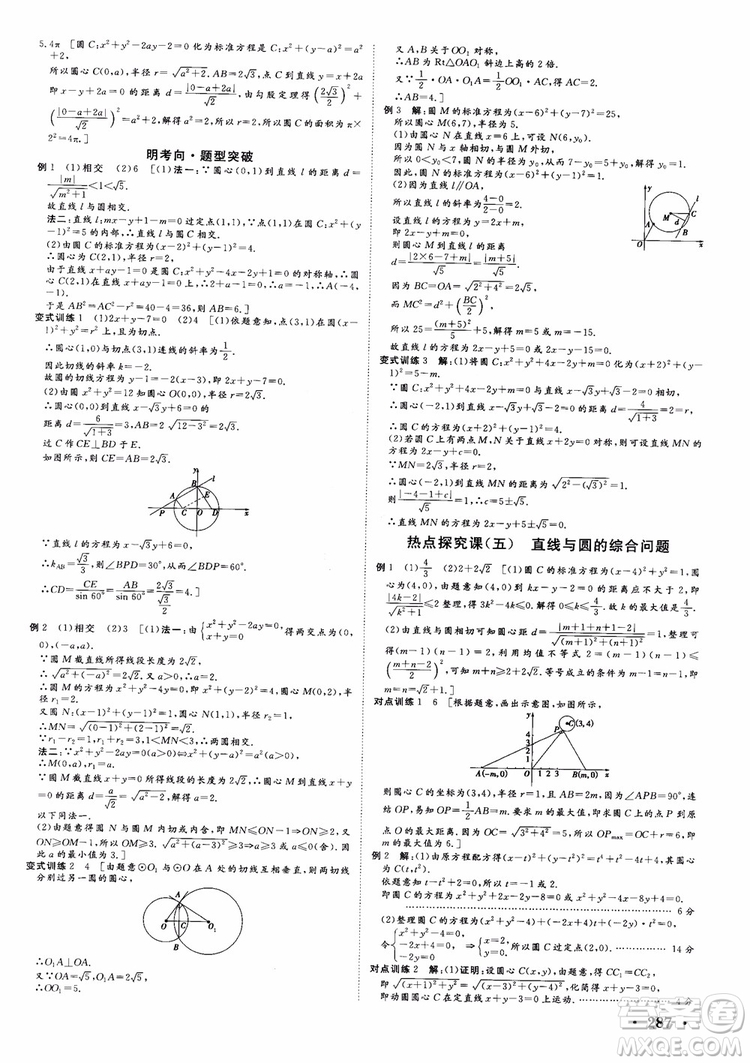 5.4π [圆 C:x²+y²-2ay-2=0 化为标准方程为 x²+(y-a)²=a²
+2,
所以圆心 C(0,a),半径 r=√(a²+2). AB=2√3,圆心到直线 y=x+2a
即 x-y+2a=0 的距离 d=|0-a+2a|/√2,由勾股定理得(2√3/2)²+
(|0-a+2a|/√2)²=a²+2,解得 a²=2,所以 r=2,所以圆 C 的面积为 π×
2²=4π.]
明考向·题型突破
例 1 (1)相交 (2)6 [(1)法一:∵圆心(0,1)到直线 l 的距离 d=
|m|/√(m²+1)<1<√5.
故直线 l 与圆相交.
法二:直线 l:mx-y+1-m=0 过定点(1,1),∵点(1,1)在圆 C:
x²+(y-1)²=5 的内部,∴直线 l 与圆相交.
(2)由圆 C:x²+y²-4x-2y+1=0
∴圆心坐标为 C(2,1),半径 r=2.
由于直线 x+ay-1=0 是圆 C:x²+y²-4x-2y+1=0 的对称轴,∴圆
心 C(2,1)在直线 x+ay-1=0 上,
∴2+a-1=0,∴a=-1,∴A(-4,-1).
于是 AC²=40,AB²=AC²-r²=40-4=36,所以|AB|=6.]
变式训练 1 (1)2x+y-7=0 (2)4 [(1)依题意知,点(3,1)在圆(x-
1)²+y²=r² 上,
∴圆心(1,0)与切点(3,1)连线的斜率为 1/2.
因此切线的斜率 k=-2.
故圆的切线方程为 y-1=-2(x-3),即 2x+y-7=0.
(2)由圆 x²+y²=12 知圆心 O(0,0),半径 r=2√3.
∴圆心(0,0)到直线 x-√3y+6=0 的
距离 d=6/√(1+3)=3,AB=2√(12-3²)=2√3.
过 C 作 CE⊥BD 于 E.
如图所示,则 CE=AB=2√3.
y
B
A
E
P
C
O
D
x
∵直线 l 的方程为 x-√3y+6=0,
∴k_AB=√3/3,则∠BPD=30°,从而∠BDP=60°.
∴CD=CE/sin 60°=AB/sin 60°=2√3/(√3/2)=4.]
例 2 (1)相交 (2)3 [(1)法一:由{x²+y²-2ay=0, x+y=0 得两交点为(0,
0),(-a,a).
∵圆 M 截直线所得线段长度为 2√2,
∴√(a²+(-a)²)=2√2.又 a>0,∴a=2.
∴圆 M 的方程为 x²+y²-4y=0,即 x²+(y-2)²=4,圆心 M(0,2),半径 r₁=2.
又圆 N:(x-1)²+(y-1)²=1,圆心 N(1,1),半径 r₂=1,
∴MN=√((0-1)²+(2-1)²)=√2.
∵r₁-r₂=1,r₁+r₂=3,1<MN<3,∴两圆相交.
法二:∵x²+y²-2ay=0(a>0)⇔x²+(y-a)²=a²(a>0),
∴M(0,a),r₁=a.
∵圆 M 截直线 x+y=0 所得线段的长度为 2√2,∴圆心 M 到直线 x+
y=0 的距离 d=a/√2=√(a²-2),解得 a=2.
以下同法一.
(2)由题意得圆 N 与圆 M 内切或内含,即 MN≤ON-1⇒ON≥
MN+1,又 ON≥OM,所以 OM≥3,a≥3 或 a≤-3(舍去).因此
a 的最小值为 3.]
变式训练 2 4 [由题意⊙O₁ 与⊙O 在 A 处的切线互相垂直,则两切线
分别过另一圆的圆心,
A
O
C
O₁
B
∴O₁A⊥OA.
又∵OA=√5,O₁A=2√5,
∴OO₁=5.
又 A,B 关于 OO₁ 对称,
∴AB 为 Rt△OAO₁ 斜边上高的 2 倍.
又∵1/2·OA·O₁A=1/2OO₁·AC,得 AC=2.
∴AB=4.]
例 3 解:圆 M 的标准方程为(x-6)²+(y-7)²=25,
所以圆心 M(6,7),半径为 5.
(1)由圆心 N 在直线 x=6 上,可设 N(6,y₀).
因为圆 N 与 x 轴相切,与圆 M 外切,
所以 0<y₀<7,圆 N 的半径为 y₀,从而 7-y₀=5+y₀,解得 y₀=1.
因此,圆 N 的标准方程为(x-6)²+(y-1)²=1.
(2)因为直线 l∥OA,
所以直线 l 的斜率为 (4-0)/(2-0)=2.
设直线 l 的方程为 y=2x+m,
即 2x-y+m=0,
则圆心 M 到直线 l 的距离
d=|2×6-7+m|/√5=|m+5|/√5.
因为 BC=OA=√(2²+4²)=2√5,
而 MC²=d²+(BC/2)²,
所以 25=(m+5)²/5+5,解得 m=5 或 m=-15.
故直线 l 的方程为 2x-y+5=0 或 2x-y-15=0.
y
M
C
d
A
B
O
x
变式训练 3 解:(1)将圆 C:x²+y²+4x-2y+m=0 化为(x+2)²+
(y-1)²=5-m,
∵圆 C:x²+y²+4x-2y+m=0 与直线 x-√3y+√3-2=0 相切,
∴圆心(-2,1)到直线 x-√3y+√3-2=0 的距离 d=4/√(1+3)=2=r,
∴圆 C 的方程为(x+2)²+(y-1)²=4.
(2)若圆 C 上有两点 M,N 关于直线 x+2y=0 对称,则可设直线 MN 的
方程为 2x-y+c=0,
∵MN=2√3,半径 r=2,
∴圆心(-2,1)到直线 MN 的距离为√(2²-(√3)²)=1.
则|-4-1+c|/√5=1,∴c=5±√5,
∴直线 MN 的方程为 2x-y+5±√5=0.
热点探究课(五) 直线与圆的综合问题
例 1 (1)4/3 (2)4 [(1)圆 C 的标准方程为(x-4)²+y²=1,圆心为
(4,0).由题意知(4,0)到 kx-y-2=0 的距离应不大于 2,即
|4k-2|/√(k²+1)≤2 整理,得 3k²-4k≤0.解得 0≤k≤4/3.故 k 的最大值是4/3.
(2)由直线与圆相切可知 |m+n|=√((m+1)²+(n+1)²),整理得
(m-1)(n-1)=2,利用均值不等式 2=(m-1)(n-1)≤
((m+n-2)/2)²,即 m+n≥2+2√2.等号成立的条件为(m-1)(n-1)=2,即
m=n=√2+1.]
对点训练 1 6 [根据题意,画出示意图,如图所示,
y
P
C(3,4)
A(-m,0)
0 1 2 3
B(m,0)
x
则圆心 C 的坐标为(3,4),半径 r=1,且 AB=2m,因为∠APB=90°,连
接 OP,易知 OP=1/2AB=m.要求 m 的最大值,即求圆 C 上的点 P 到原
点 O 的最大距离.因为 OC=√(3²+4²)=5,所以(OP)max=OC+r=
6,即 m 的最大值为 6.]
例 2 解:(1)由原方程配方得(x-t)²+(y-t²)²=t⁴+t²-2t+4.
依题意知 t>0,且 t⁴+t²-2t+4=t⁴,∴t=2,
即 C(2,4),从而圆 C 的方程为(x-2)²+(y-4)²=16. …… 6 分
(2)整理圆 C 的方程为(x²+y²-4)+(-2x)t+(-2y)t²+2t=0,
令{x²+y²-4=0, -2x+2=0, -2y=0
14 分
对点训练 2 解:(1)证明:设圆心 C(x,y),由题意易得圆心
即动圆圆心 C 在定直线 x-y-1=0 上运动.
·287·
答案圈